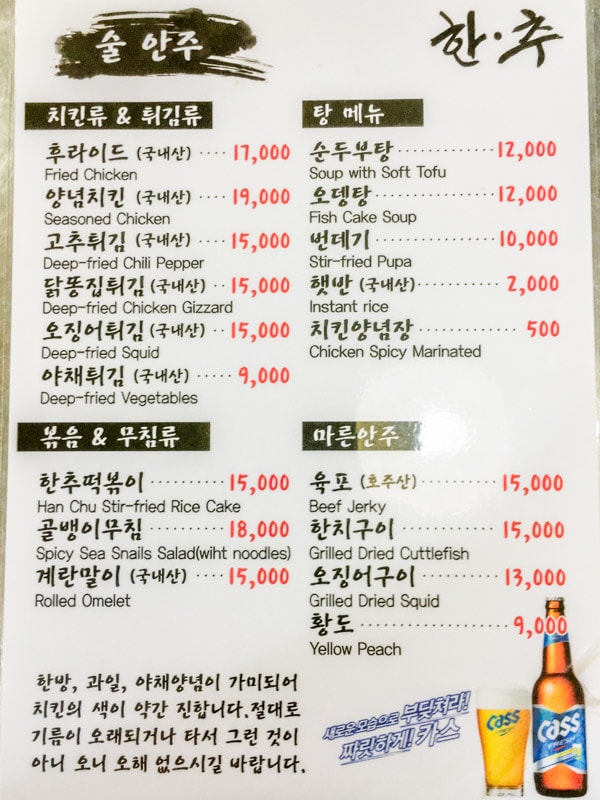 술 안주
한·추
치킨류 & 튀김류
후라이드 (국내산) ···· 17,000
Fried Chicken
양념치킨 (국내산) ···· 19,000
Seasoned Chicken
고추튀김 (국내산) ···· 15,000
Deep-fried Chili Pepper
닭똥집튀김 (국내산) ·· 15,000
Deep-fried Chicken Gizzard
오징어튀김 (국내산) ·· 15,000
Deep-fried Squid
야채튀김 (국내산) ····· 9,000
Deep-fried Vegetables
탕 메뉴
순두부탕 ·············· 12,000
Soup with Soft Tofu
오뎅탕 ················ 12,000
Fish Cake Soup
번데기 ················ 10,000
Stir-fried Pupa
햇반 (국내산) ··········· 2,000
Instant rice
치킨양념장 ············· 500
Chicken Spicy Marinated
볶음 & 무침류
한추떡볶이 ··········· 15,000
Han Chu Stir-fried Rice Cake
골뱅이무침 ··········· 18,000
Spicy Sea Snails Salad(wiht noodles)
계란말이 (국내산) ···· 15,000
Rolled Omelet
마른안주
육포 (호주산) ·········· 15,000
Beef Jerky
한치구이 ·············· 15,000
Grilled Dried Cuttlefish
오징어구이 ············ 13,000
Grilled Dried Squid
황도 ··················· 9,000
Yellow Peach
한방, 과일, 야채양념이 가미되어
치킨의 색이 약간 진합니다.절대로
기름이 오래되거나 타서 그런 것이
아니 오니 오해 없으시길 바랍니다.
새로운 모습으로 부딪쳐라!
짜릿하게! 카스
Cass
Cass